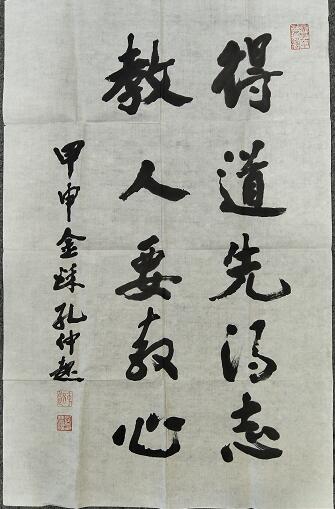 得道先得志
教人要教心
甲申金秋孔仲起